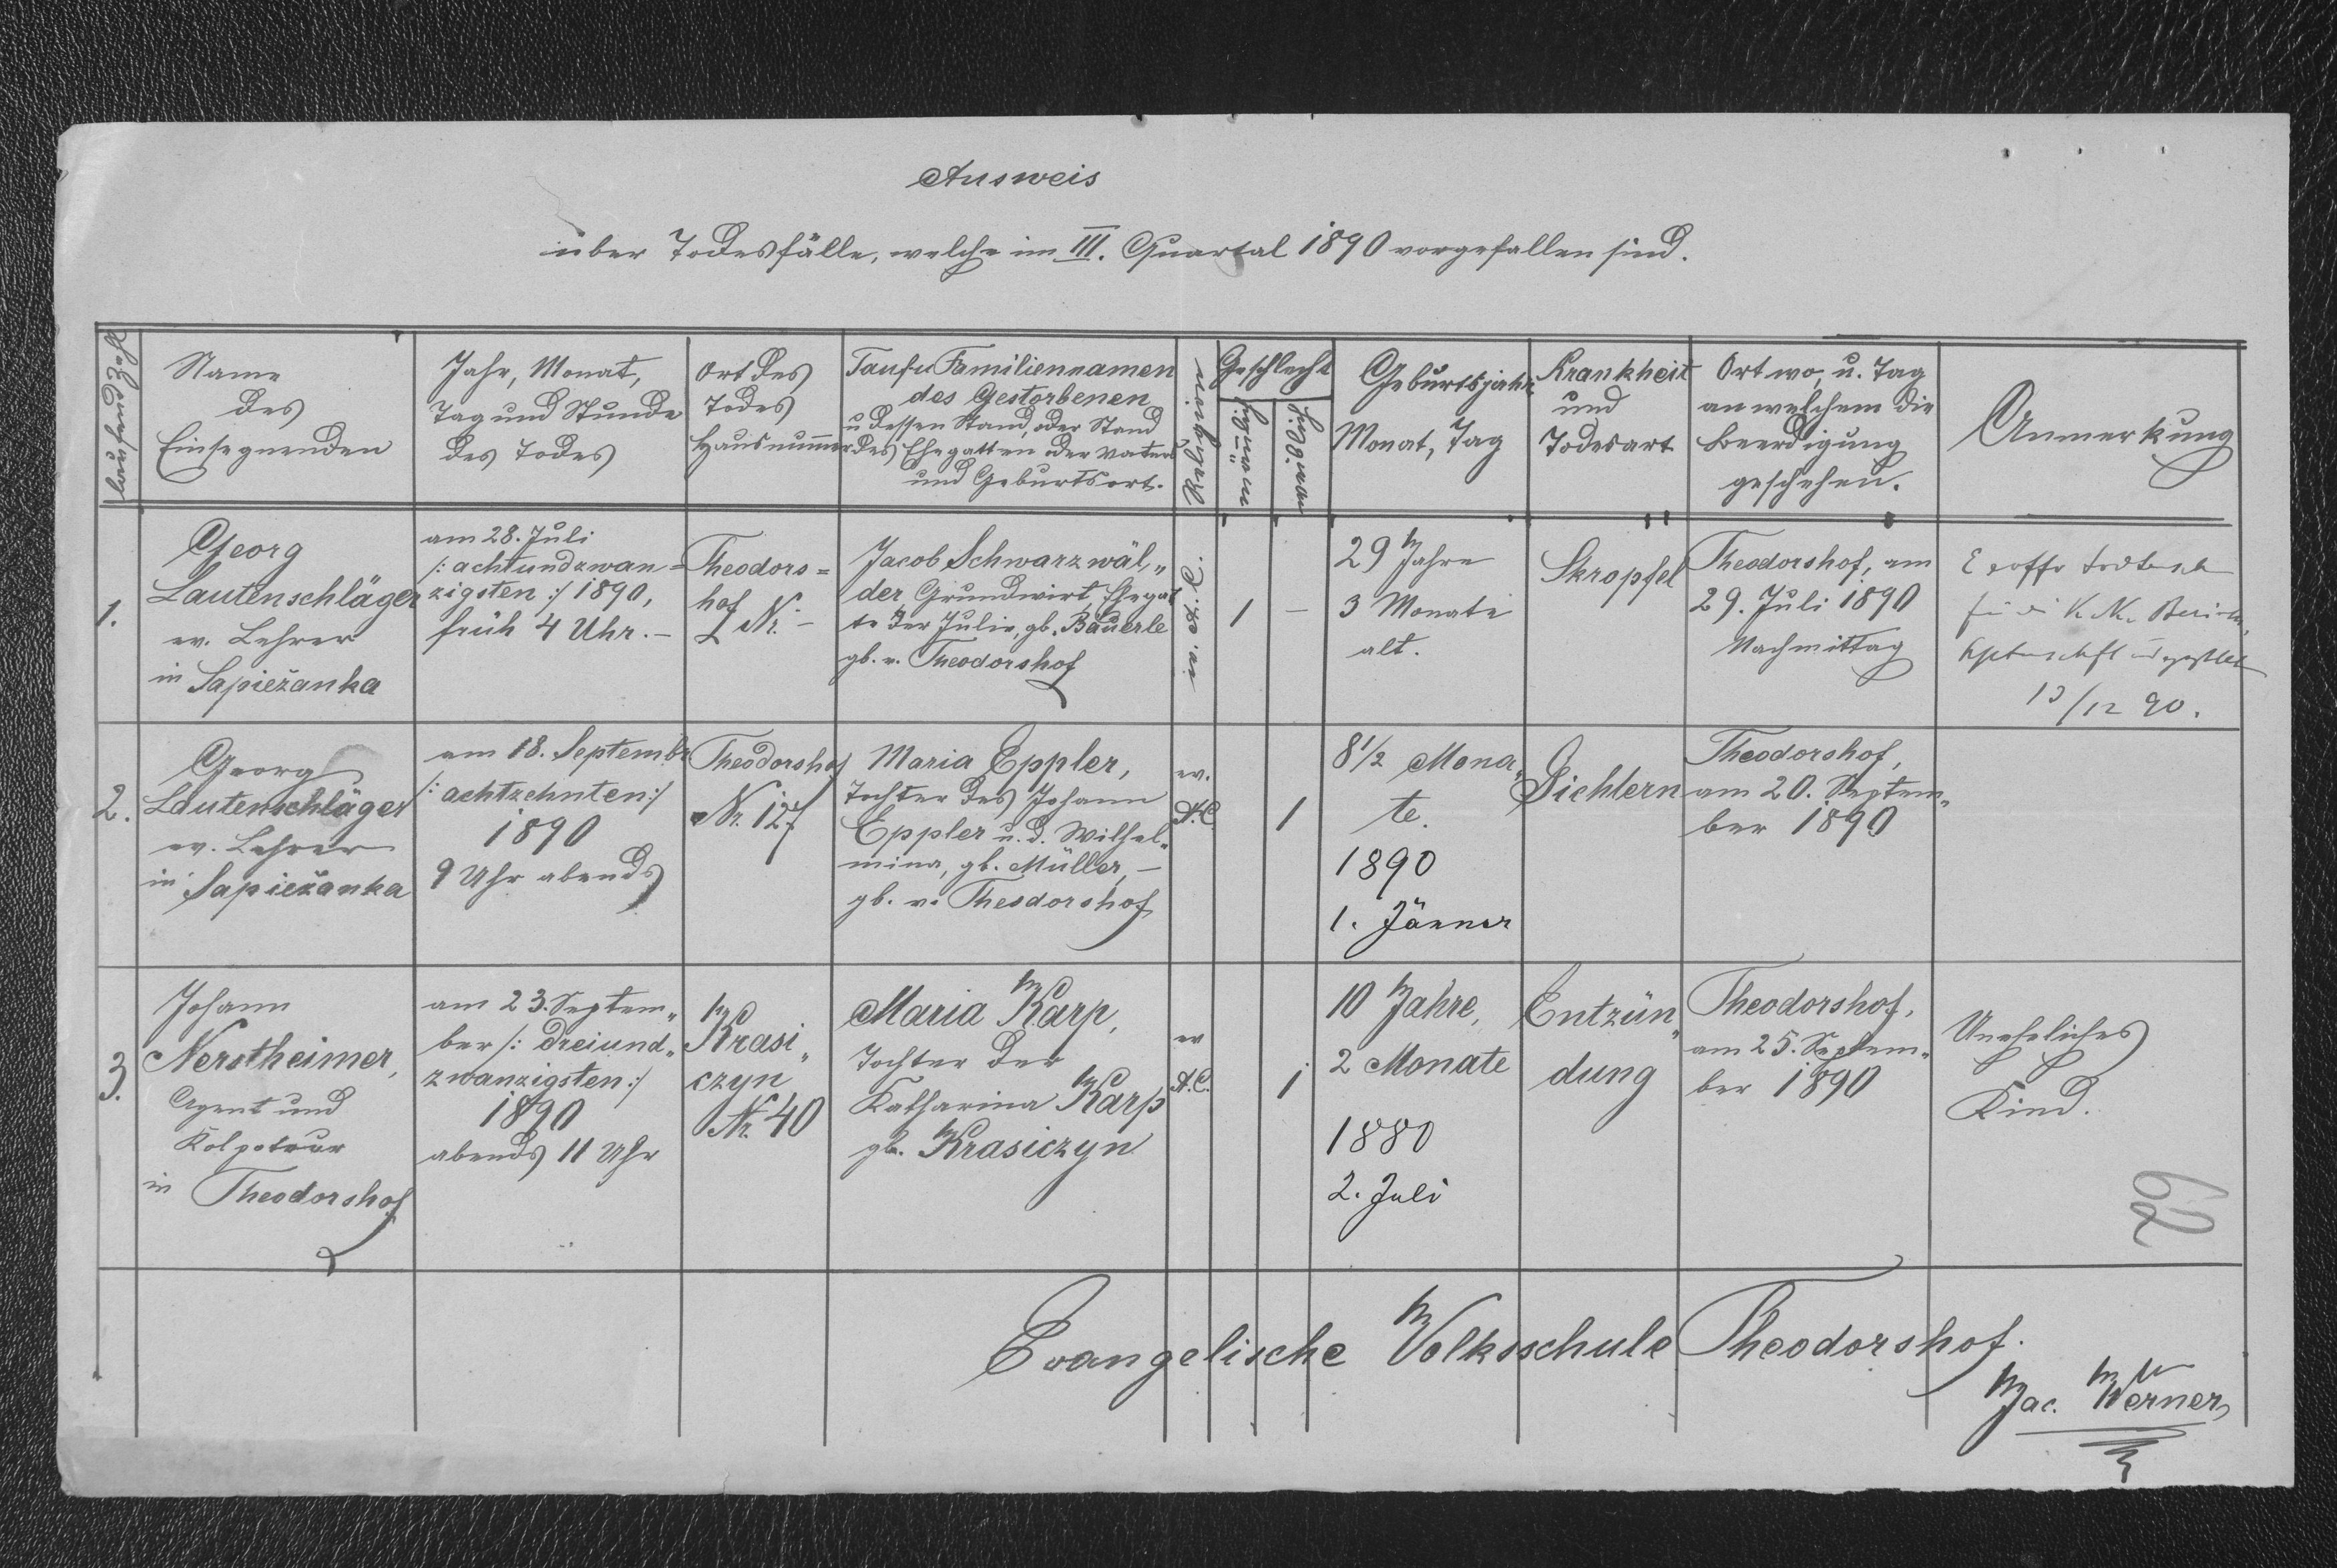 Ausweis
über Todesfälle, welche im III. Quartal 1890 vorgefallen sind.
Laufende Zahl
Name
des
Einsegnenden
Jahr, Monat,
Tag und Stunde
des Todes
Ort des
Todes
Hausnummer
Tauf u Familiennamen
des Gestorbenen
u dessen Stand, oder Stand
des Ehegatten oder Vaters
und Geburtsort.
Religion
Geschlecht
männl.
weibl.
Geburtsjahr,
Monat, Tag
Krankheit
und
Todesart
Ort wo, u. Tag
an welchem die
Beerdigung
geschehen.
Anmerkung
1.
Georg
Lautenschläger
ev. Lehrer
in Sapieżanka
am 28. Juli
/: achtundzwan=
zigsten :/ 1890,
früh 4 Uhr. –
Theodors=
hof
Nr. –
Jacob Schwarzwäl„
der Grundwirt, Ehegat
te der Julie, gb. Bäuerle
gb. v. Theodorshof
ev. A. C.
1
–
29 Jahre
3 Monate
alt.
Skropfel
Theodorshof, am
29. Juli 1890
Nachmittag
für die K. K.
/12 90.
2.
Georg
Lautenschläger
ev. Lehrer
in Sapieżanka
am 18. Septembr
/: achtzehnten :/
1890
9 Uhr abends
Theodorshof
Nr. 127
Maria Eppler,
Tochter des Johann
Eppler u. d. Wilhel„
mina, gb. Müller, –
gb. v. Theodorshof
ev.
A. C.
1
8½ Mona„
te.
1890
1. Jänner
Gichtern
Theodorshof,
am 20. Septem„
ber 1890
3.
Johann
Nerstheimer,
Agent und
Kolpoteur
in Theodorshof
am 23. Septem„
ber /: dreiund„
zwanzigsten :/
1890
abends 11 Uhr
Krasi„
czyn
Nr. 40
Maria Karp,
Tochter der
Katharina Karp
gb. Krasiczyn
ev
A. C.
1
10 Jahre,
2 Monate
1880
2. Juli
Entzün„
dung
Theodorshof,
am 25. Septem„
ber 1890
Uneheliches
Kind.
62
Evangelische Volksschule Theodorshof.
Jac. Werner